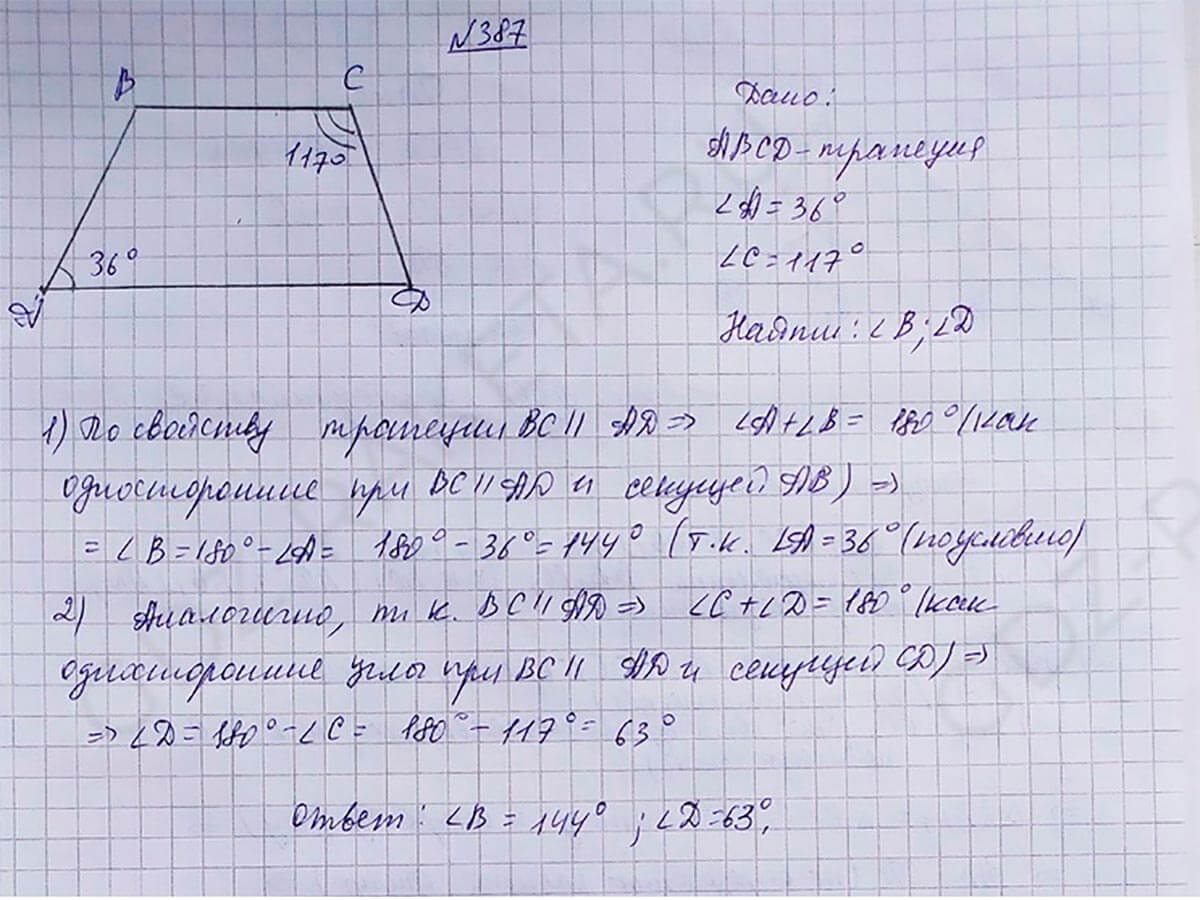 №387
B
C
117°
36°
A
D
Дано:
ABCD - трапеция
∠A = 36°
∠C = 117°
Найти: ∠B; ∠D
1) По свойству трапеции BC || AD => ∠A+∠B = 180° (как
односторонние при BC || AD и секущей AB) =>
= ∠B = 180° - ∠A = 180° - 36° = 144° (т.к. ∠A = 36° (по условию)
2) Аналогично, т. к. BC || AD => ∠C + ∠D = 180° (как
односторонние углы при BC || AD и секущей CD) =>
=> ∠D = 180° - ∠C = 180° - 117° = 63°
Ответ: ∠B = 144° ; ∠D = 63°.